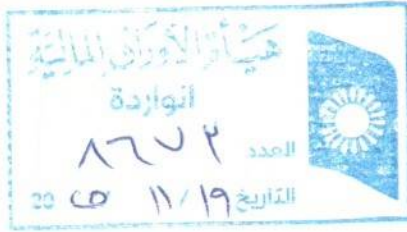 هيأة الأوراق المالية
الواردة
العدد ٨٦٧٢
التاريخ ١٩ / ١١ 20